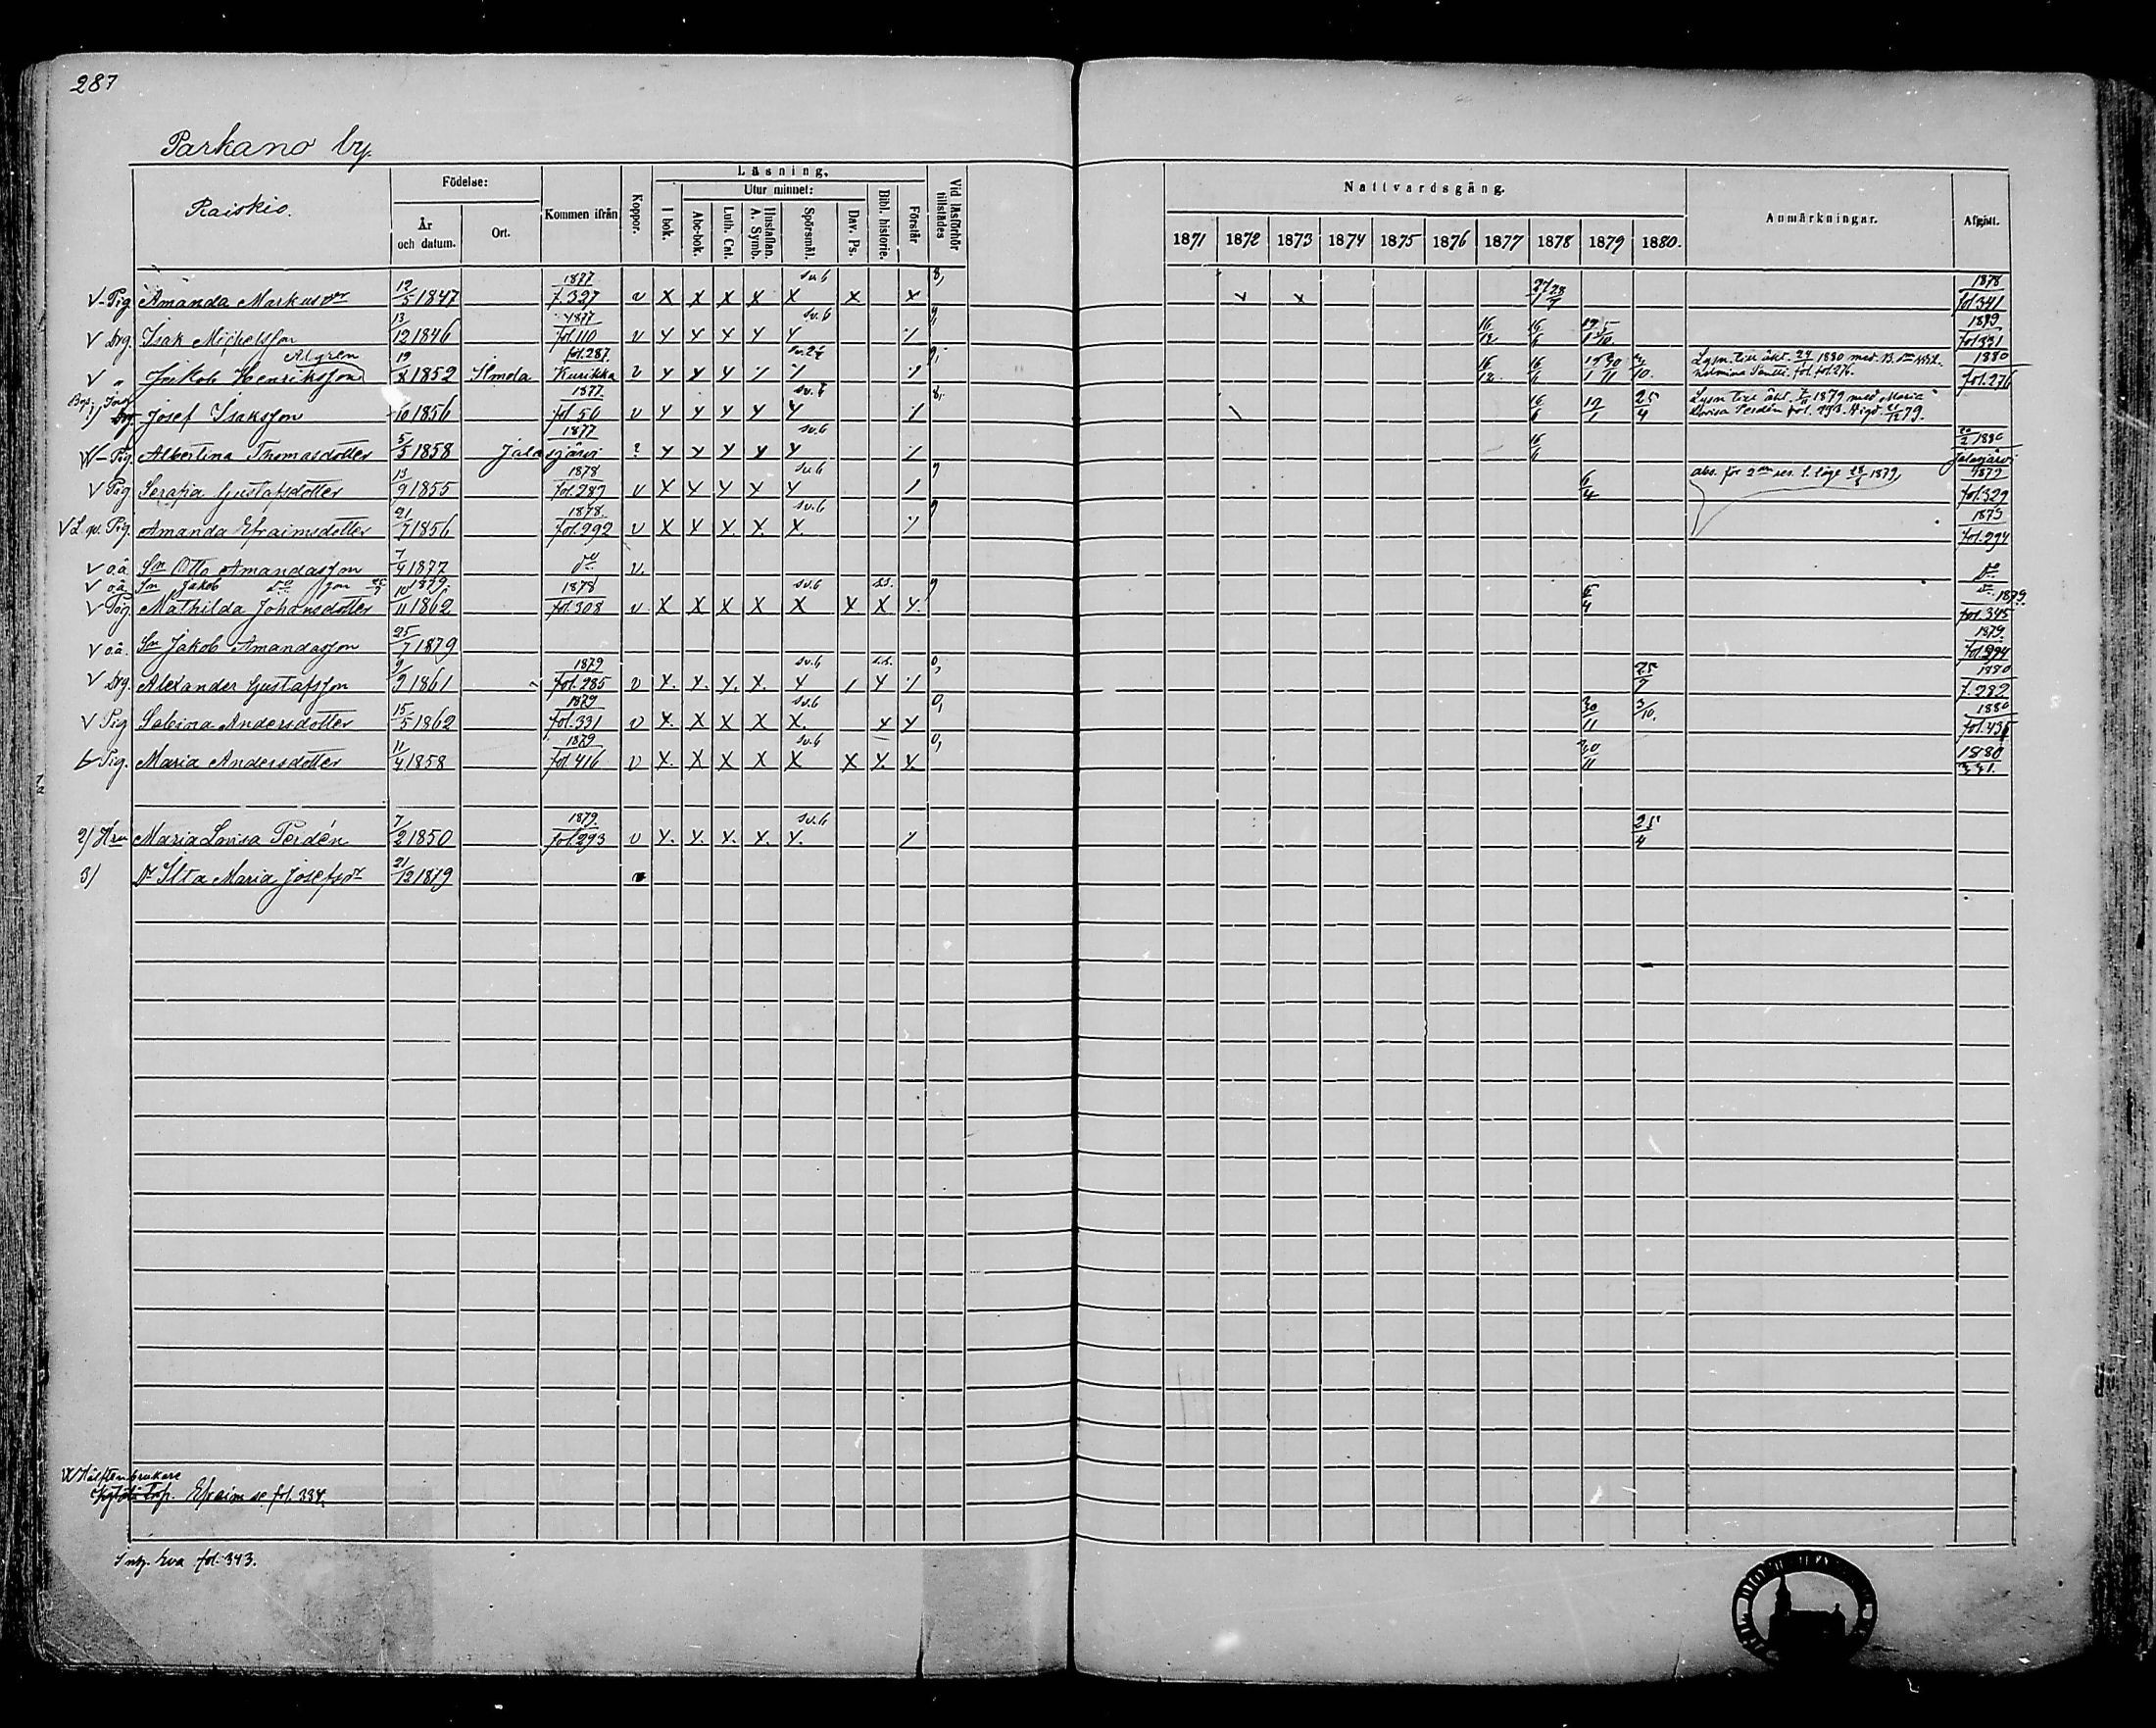 287
Parkano by.
Raiskio.
Födelse:
År och datum.
Ort.
Kommen ifrån
Koppor.
Läsning.
I bok.
Utur minnet:
Abc-bok.
Luth. Cat.
Hustaflan. A. Symb.
Spörsmål.
Dav. Ps.
Bibl. historie.
Förstår
Vid läsförhör tillstädes
Nattvardsgång.
1871 1872 1873 1874 1875 1876 1877 1878 1879 1880.
Anmärkningar.
Afgått.
V - Pig Amanda Markusdr 12/5 1847 1877 f. 327 v X X X X sv.6 X X X 8, 1878 fol 341
V Drg. Isak Michelsson 13/12 1846 1877 fol. 110 v Y Y Y Y sv.6 Y 16/12 16/6 1879 fol 331
V " Jakob Henriksson Algren 19/8 1852 Ilmola fol. 287. Kurikka v Y Y Y 16/12 16/6 3/10. Lysn. till äkt. 1880 med 1880
fol. fol. 276. fol. 276
Josef Isaksson 10 1856 1877 fol 50 v Y Y Y Y Y 16/6 19/1 25/4 Lysn. till äkt. 1879 med Maria
Lovisa Perdén fol. 293. Vigd 79.
Pig. Albertina Thomasdotter 5/5 1858 Jalasjärvi 1877 ? Y Y Y Y sv.6 Y 16/6 1880 Jalasjärvi
V Pig Serafia Gustafsdotter 13/9 1855 1878 fol. 289 v X Y Y Y sv.6 Y 9 6/4 abs. för 2 1879, 1879 fol. 329
V Pig. Amanda Efraimsdotter 21/7 1856 1878. fol. 292 v X X X X. sv.6 X. 9 1879 fol. 294
V o.ä. Sn Otto Amandasson 7/4 1877 do v.
V o.ä. Sn Jakob do son 25/7 1879.
V Pig. Mathilda Johansdotter 10/11 1862 1878 fol. 308 v X X X X sv.6 X X X Y. 9 6/4 1879. fol. 345
V o.ä. Sn Jakob Amandasson 25/7 1879 1879. fol. 294
V Drg. Alexander Gustafsson 9/9 1861 1879 fol. 285 v Y. Y. Y. X. sv.6 Y 25/7 1880 f. 282
V Pig Sabina Andersdotter 15/5 1862 1879 fol. 331 v X. X X X sv.6 X. Y Y 30/11 3/10. 1880
Pig. Maria Andersdotter 11/4 1858 1879 fol. 416 v X. X X X sv.6 X X Y. Y. 30/11 1880 331.
2) Hru Maria Lovisa Perdén 7/2 1850 1879. fol. 293 v Y. Y. Y. Y. sv.6 Y. 25/4
3) Dr Ilta Maria Josefsdr 21/12 1879
Hälftenbrukare
Efraim se fol. 334.
Inh. Eva fol. 343.